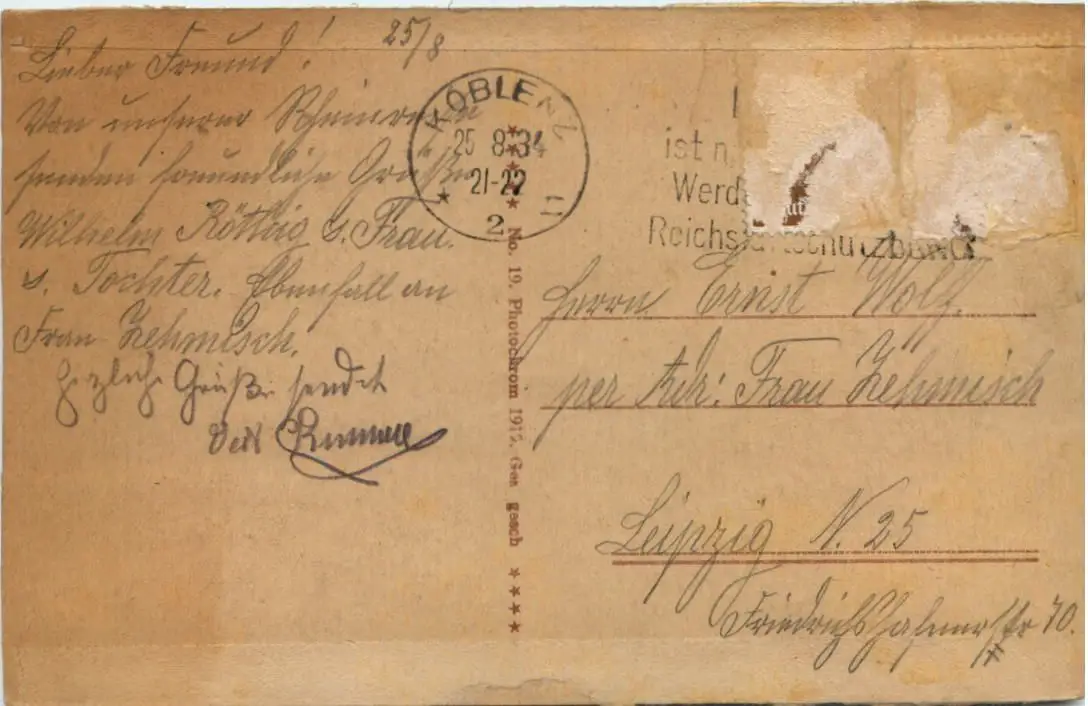 25/8
Lieber Freund!
Von unserer Rheinreise
senden freundliche Grüße
Wilhelm Röttig u. Frau.
u. Tochter. Ebenfall an
Frau Zehmisch.
Herzliche Grüße sendet
KOBLENZ
25 8.34
21-22
2
ist n
Werd
Reichsluftschutzbund
No. 19. Photochrom 1912. Ges gesch
Herrn Ernst Wolf.
per Adr: Frau Zehmisch
Leipzig N. 25
Friedrichshafnerstr 70.